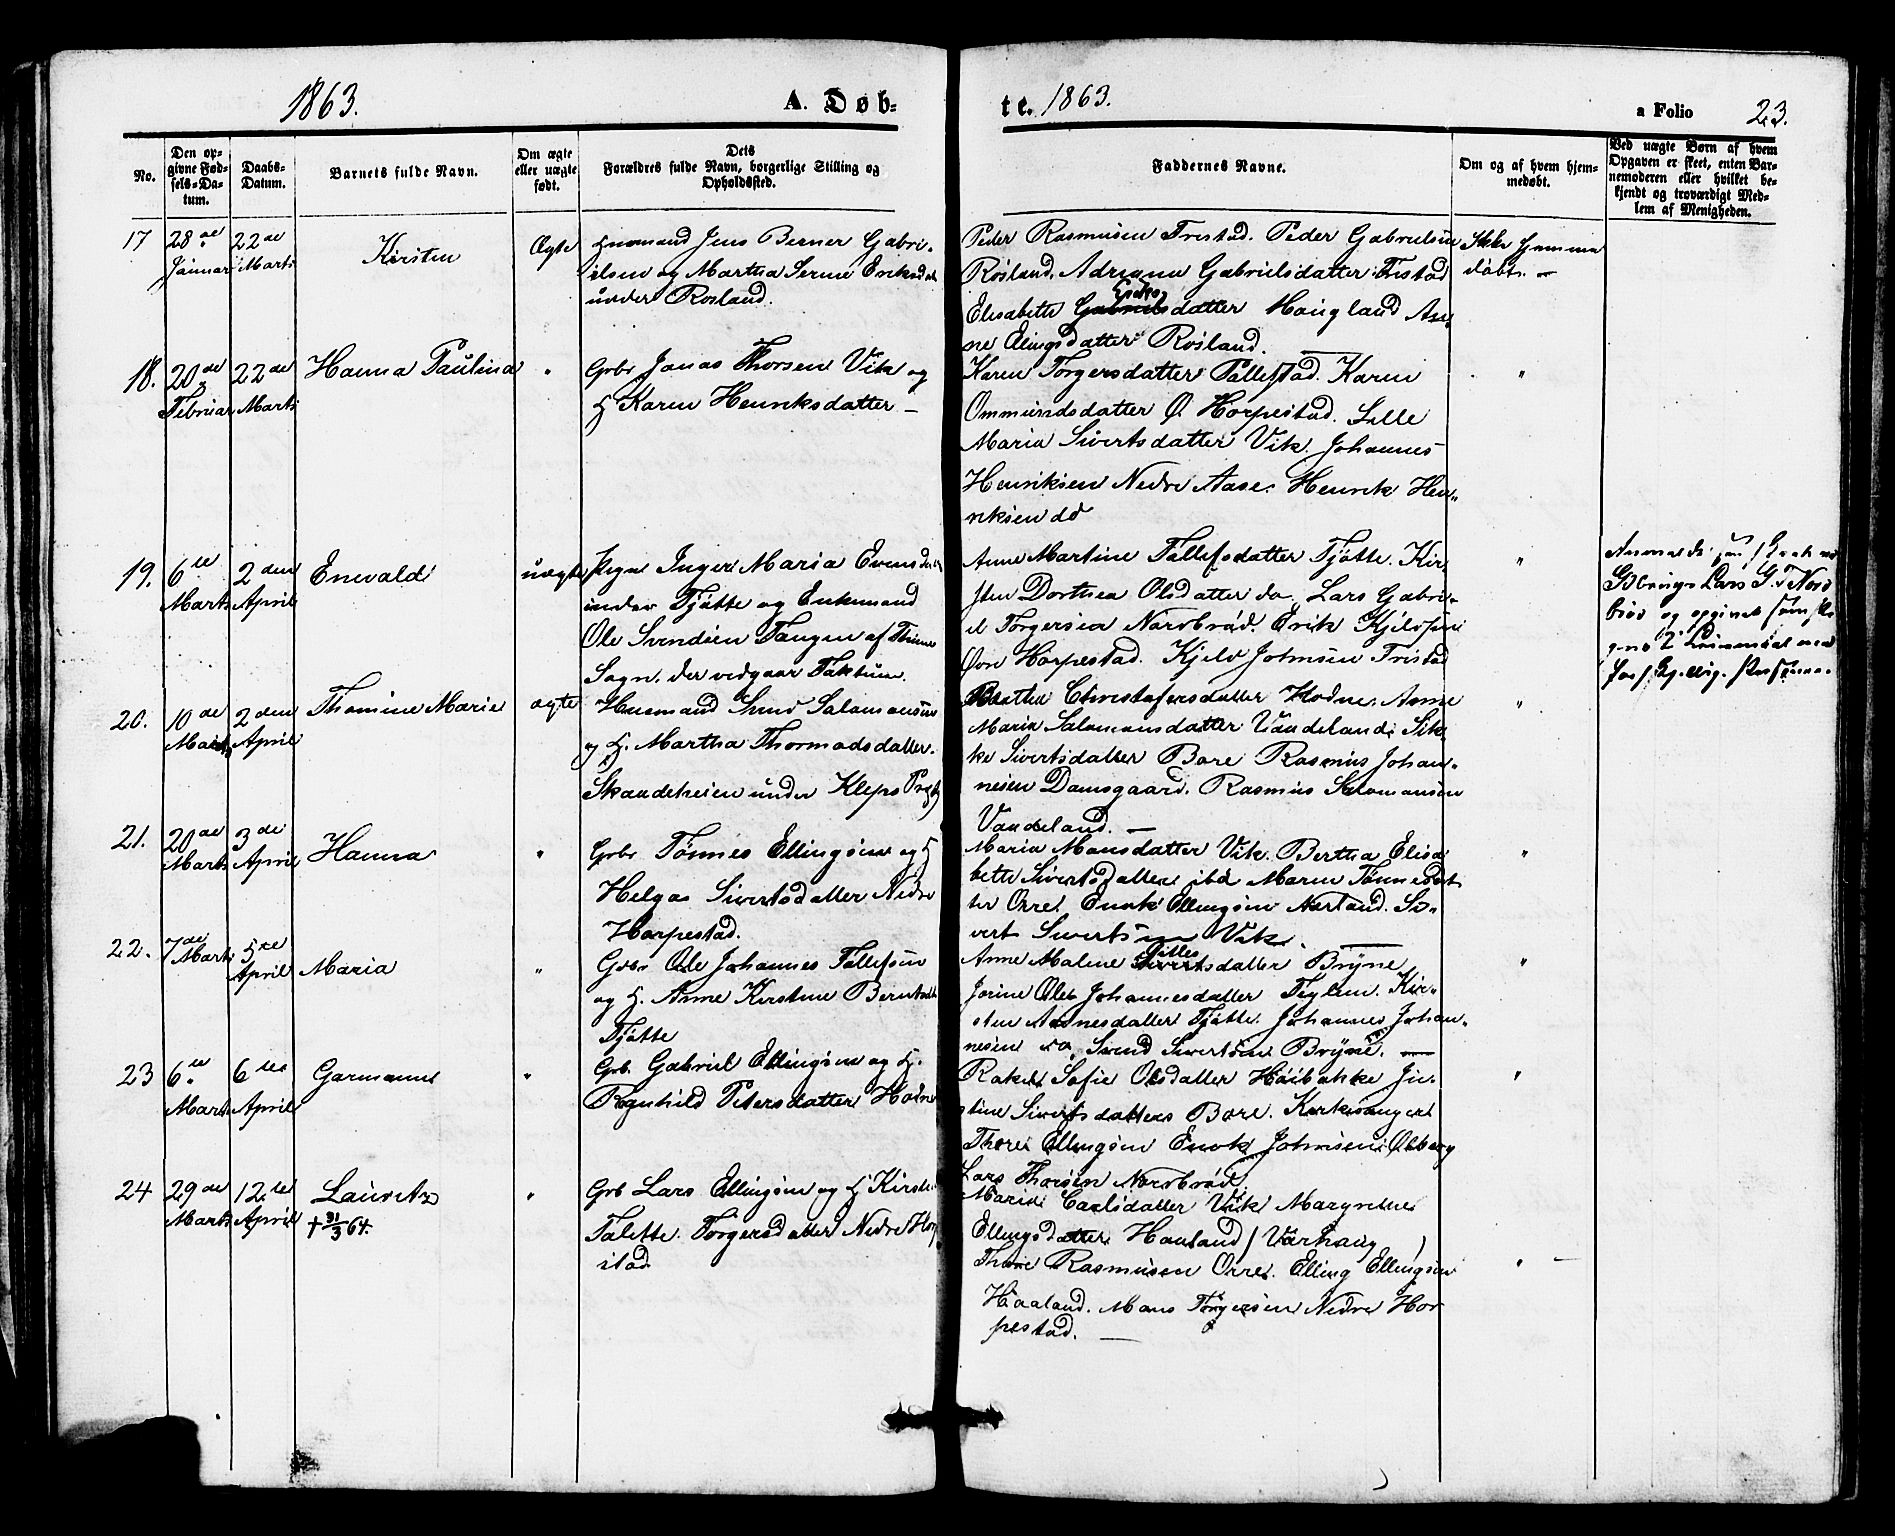 1863.
A. Døb-
te. 1863.
a Folio 23.
No.
Den op-
givne Fød-
sels-Da-
tum.
Daabs-
Datum.
Barnets fulde Navn.
Om ægte
eller uægte
født.
Dets
Forældres fulde Navn, borgerlige Stilling og
Opholdssted.
Faddernes Navne.
Om og af hvem hjem-
medøbt.
Ved uægte Børn af hvem
Opgaven er skeet, enten Bar-
nemoderen eller hvilket be-
kjendt og troværdigt Med-
lem af Menigheden.
17
28de
Januar
22de
Marts
Kirsten
Ægte
Huusmand Jens Berner Gabri-
elsen og Martha Serine Eriksdat
under Rosland.
Peder Rasmusen Tristad. Peder Gabrielsen
Rosland. Adriane Gabrielsdatter Tristad
Elisabeth Gabrielsdatter Haugland An-
Eriks
ne Elingsdatter Rosland.
Ikke hjemme
døbt. —
18.
20de
Februar
22de
Marts
Hanna Paulina
"
Grbr Jonas Thorsen Vik og
H Karen Henriksdatter —
Karen Torgersdatter Tallefstad. Karen
Ommundsdatter Ø. Horpestad. Lille
Maria Sivertsdatter Vik. Johannes
Henriksen Nedre Aase. Henrik Hen-
riksen do
"
19.
6te
Marts
2den
April
Enevald
uægte
Pige Inger Maria Evensdat
under Tjøtte og Enkemand
Ole Svendsen Tangen af Thime
Sogn. der vedgaar Faktum.
Anne Martine Tallefsdatter Tjøtte. Kir
sten Dorthea Olsdatter do. Lars Gabri-
el Torgersen Nordbrød. Erik Kjeldsen
Øvr Horpestad. Kjeld Johnsen Tristad
"
Lars G. Nord
brød og opgivet
20.
10de
Marts
2den
April
Thomine Marie
ægte
Huusmand Svend Salamonsen
og H. Martha Thormodsdatter.
Skaudetreien under Kleps Prgj
Berthe Christofersdatter Hodne. Anne
Maria Salamonsdatter Vaudeland. Sik
ke Sivertsdatter Bore Rasmus Johan-
nesen Damsgaard. Rasmus Salomonsen
Vaudeland. —
"
21.
20de
Marts
3de
April
Hanna
"
Grbr Tønnes Ellingsen og H
Helga Sivertsdatter Nedre
Horpestad.
Maria Monsdatter Vik. Bertha Elisa
beth Sivertsdatter ibd Maren Tønnesdat
ter Orre. Enok Ellingsen Nærland. Si-
vert Sivertsen Vik.
"
22.
7de Marts
5te
April
Maria
"
Grbr Ole Johannes Tallefsen
og H. Anne Kirstine Berntsdt
Tjøtte
Anne Malene Sivertsdatter Bryne
Jorine Oleb Johannesdatter Teglen. Kir-
sten Aanesdatter Tjøtte. Johannes Johan-
nesen do. Svend Sivertsen Bryne. —
"
23
6te
Marts
6te
April
Garmann
"
Grb. Gabriel Ellingsen og H.
Ragnhild Petersdatter Hodne
Rakel Sofie Olsdatter Høibakke Ju-
stine Sivertsdatter Bore. Kirkesanger
Thore Ellingsen Enok Johnsen Øiberg
Lars Thorsen Nordbrød.
"
24
29de
Marts
12te
April
Lauritz
+ 31/3 64.
"
Grb Lars Ellingsen og H Kirsti
Talette Torgersdatter Nedre Horp
stad.
Maria Carlsdatter Vik Margrethe
Ellingsdatter Haaland (Varhaug)
Thore Rasmusen Orre. Elling Ellingsen
Haaland. Mons Torgersen Nedre Hor
pestad. —
" —